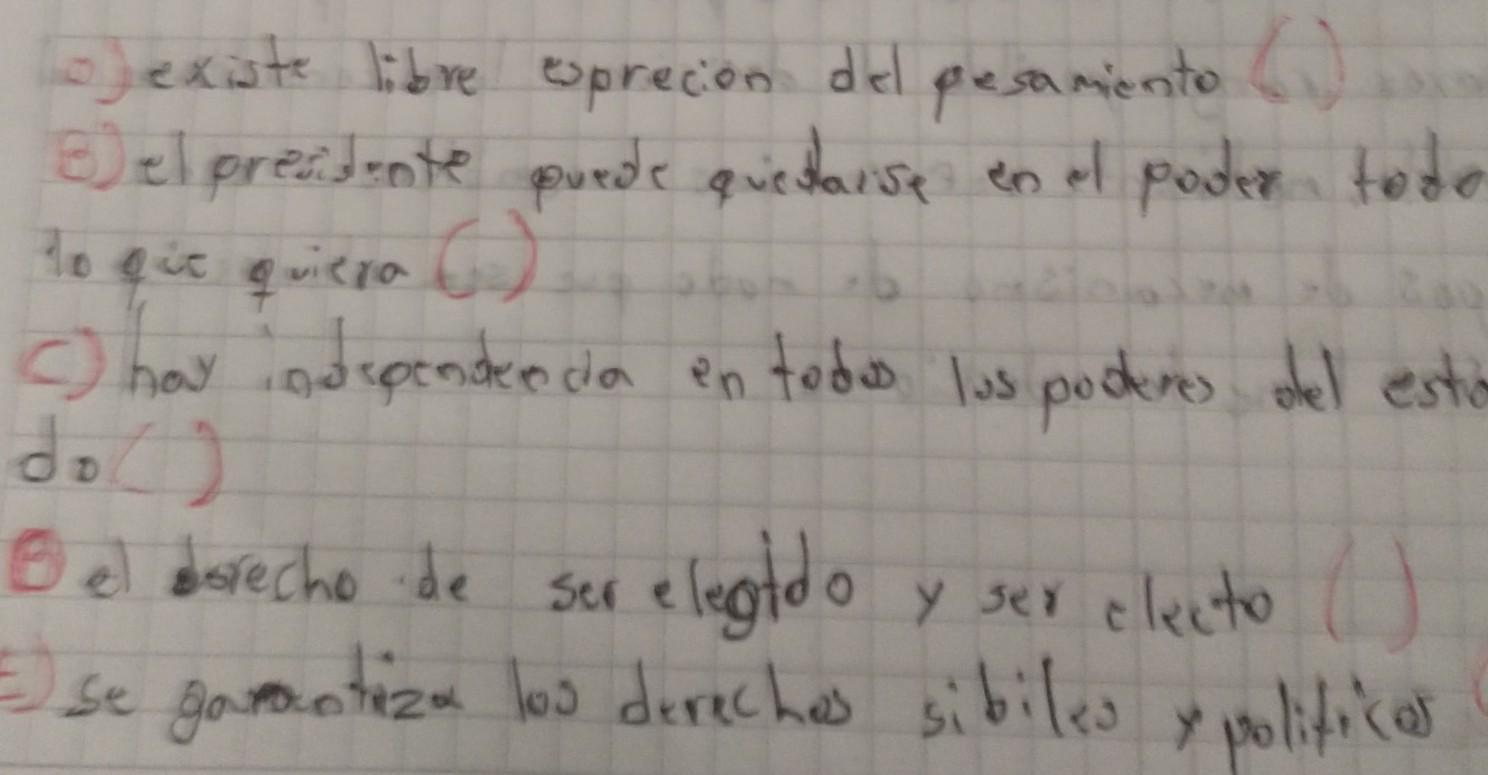 a) existe libre esprecion del pesamiento ( )
B) el presidente puede quedarse en el poder todo
lo que quiera ( )
C) hay independencia en todos los poderes del esta
do ( )
D el derecho de ser elegido y ser electo ( )
E) se garantiza los derechos sibiles y politicos (